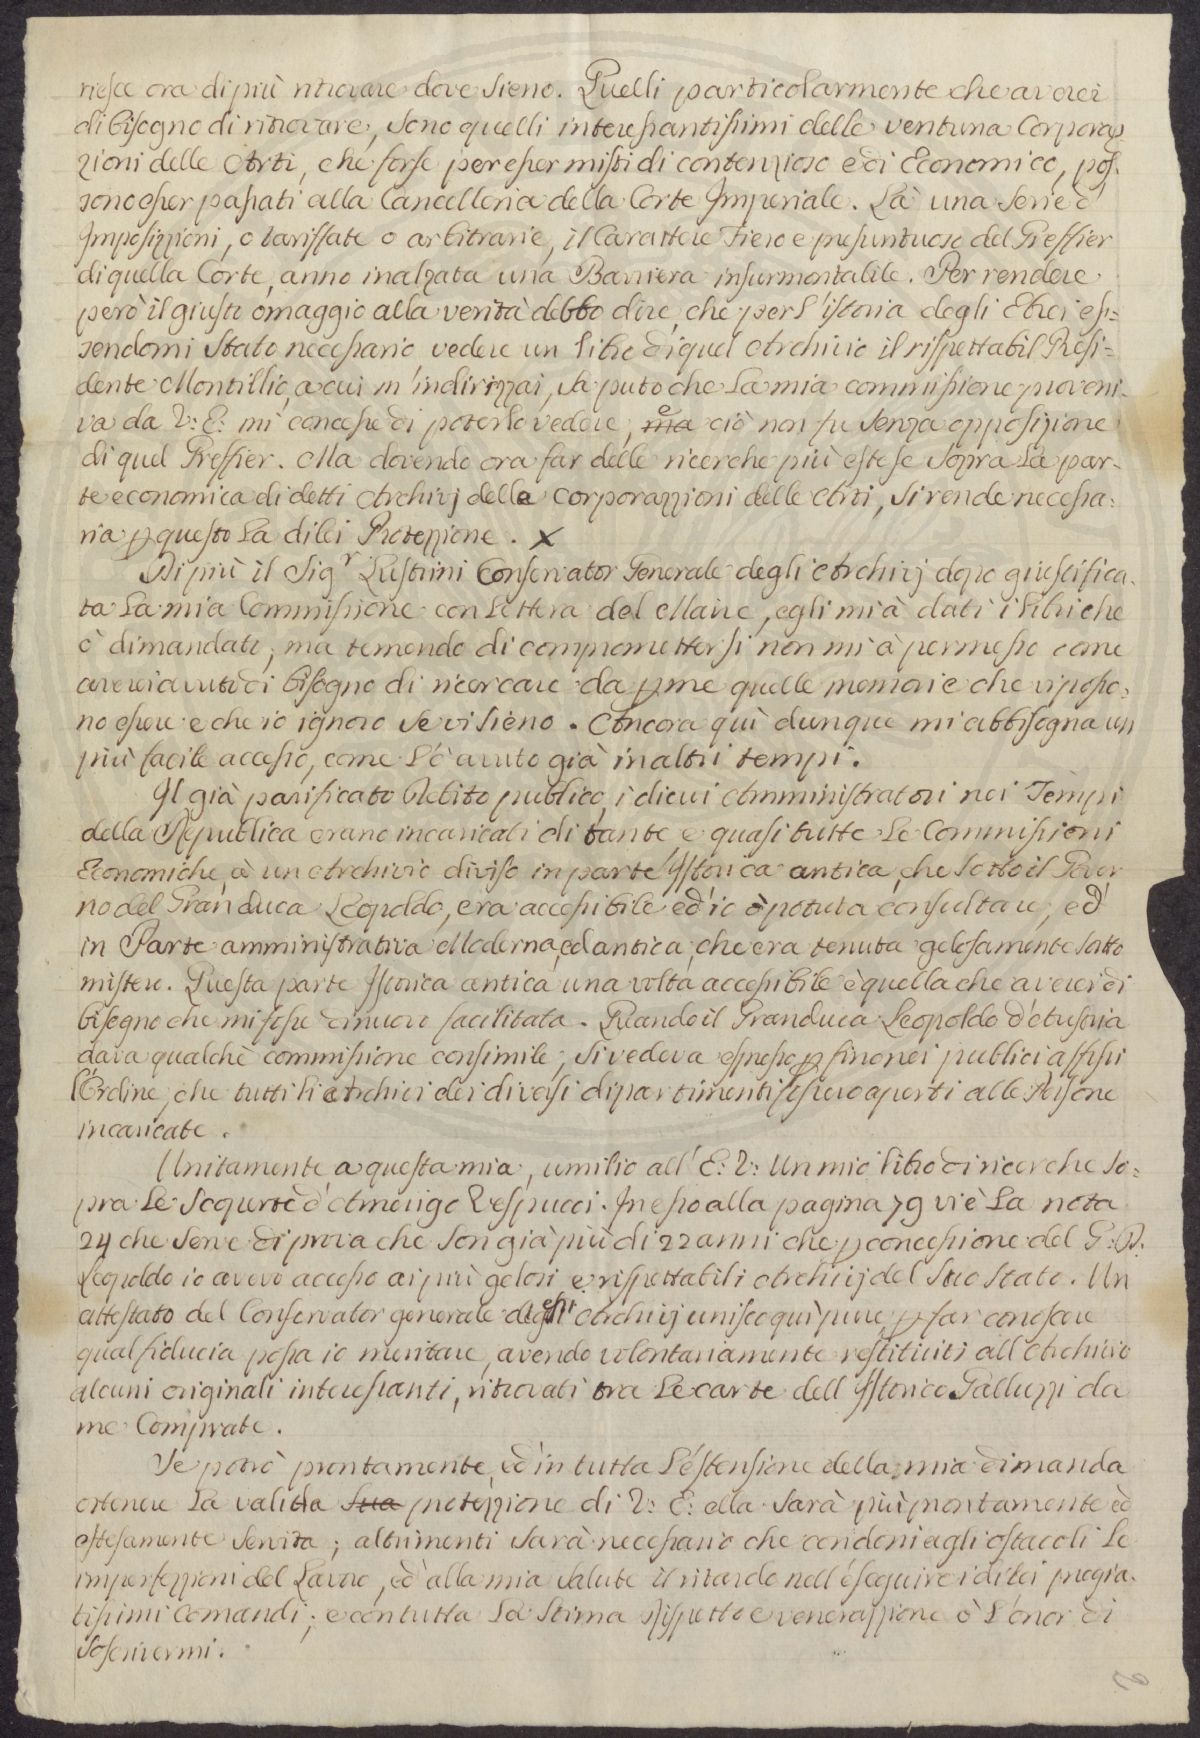 riesce ora di più ritrovare dove sieno. Quelli particolarmente che averei
di bisogno di ritrovare, sono quelli interessantissimi delle ventuna Corpora-
zioni delle Arti, che forse per esser misti di contenzioso e di Economico, pos-
sono esser passati alla Cancelleria della Corte Imperiale. Là una serie d'
Imposizzioni, o tariffate o arbitrarie, il Carattere Fiero e presuntuoso del Greffier
di quella Corte, anno inalzata una Barriera insurmontabile. Per rendere
però il giusto omaggio alla verità debbo dire, che per l'istoria degli Ebrei es-
sendomi stato necessario vedere un libro di quel Archivio il rispettabil Presi-
dente Montillio, a cui m'indirizzai, saputo che la mia commissione proveni-
va da V: E: mi concesse di poterlo vedere, ma e ciò non fu senza opposizione
di quel Greffier. Ma dovendo ora far delle ricerche più estese sopra la par-
te economica di detti Archivj delle Corporazzioni delle Arti, si rende necessa-
ria p questo la di lei Protezzione. X
Di più il Sigr Lustrini Conservator Generale degli Archivj dopo giustifica-
ta la mia Commissione con lettera del Maire, egli mi à dati i libri che
ò dimandati; ma temendo di compromettersi non mi à permesso come
averei avuto di bisogno di ricercare da p me quelle memorie che vi posso-
no essere e che io ignoro se vi sieno. Ancora quì dunque mi abbisogna un
più facile accesso, come l'ò avuto già in altri tempi.
Il già parificato Debito publico, i di cui Amministratori nei Tempi
della Republica erano incaricati di tante e quasi tutte le Commissioni
Economiche, à un Archivio diviso in parte Istorica antica, che sotto il Gover
no del Granduca Leopoldo, era accessibile ed io ò potuta consultare, ed
in Parte amministrativa Moderna, ed antica, che era tenuta gelosamente sotto
mistero. Questa parte Istorica antica una volta accessibile è quella che averei di
bisogno che mi fosse di nuovo facilitata. Quando il Granduca Leopoldo d'Austria
dava qualche commissione consimile, si vedeva espresso p fino nei publici affissi
l'Ordine, che tutti li Archivi dei diversi dipartimenti fossero aperti alle Persone
incaricate.
Unitamente a questa mia, umilio all' E: V: Un mio libro di ricerche so-
pra le Scoperte d'Amerigo Vespucci. In esso alla pagina 79 vi è la nota
24 che serve di prova che son già più di 22 anni che p concessione del G: D:
Leopoldo io avevo accesso ai più gelosi e rispettabili Archivij del suo Stato. Un
attestato del Conservator generale degli essi Archivij unisco quì pure, p far conoscere
qual fiducia possa io meritare, avendo volontariamente restituiti all'Archivio
alcuni originali interessanti, ritrovati tra le carte dell'Istorico Galluzzi da
me Comprate.
Se potrò prontamente, ed in tutta l'estensione della mia dimanda
ottenere la valida sua protezzione di V: E: ella sarà più prontamente ed
estesamente servita; altrimenti sarà necessario che condoni agli ostacoli le
imperfezzioni del Lavoro, ed alla mia salute il ritardo nell'eseguire i di lei pregia-
tissimi Comandi; e con tutta la Stima Rispetto e venerazzione ò l'onor di
soscrivermi.